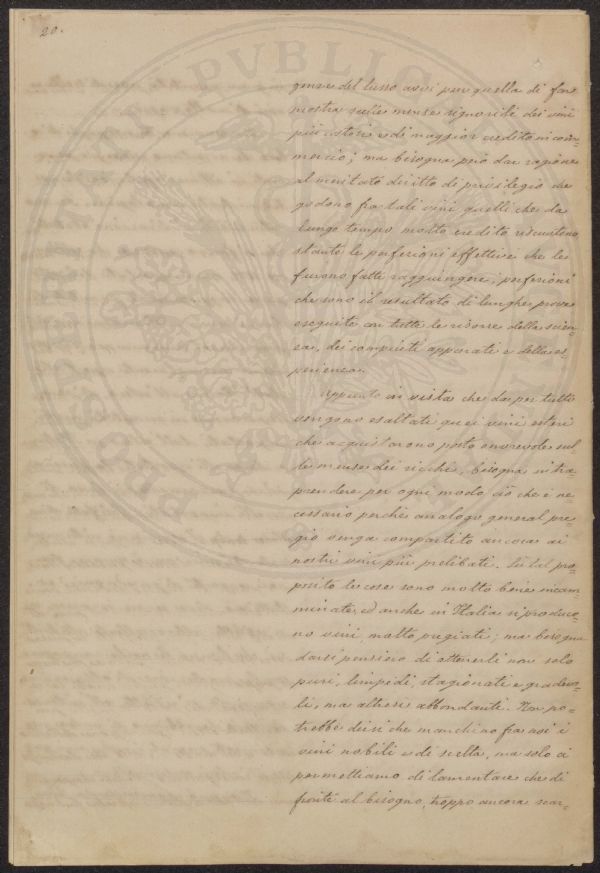 20.
genze del lusso assi per quella di far
mostra sulle mense signorili dei vini
più costosi e di maggior credito in com=
mercio; ma bisogna però dar ragione
al meritato diritto di privilegio che
godono fra tali vini quelli che da
lungo tempo molto credito riscuotono
stante le perfezioni effettive che le
furono fatte raggiungere; perfezioni
che sono il resultato di lunghe prove
eseguite con tutte le risorse della scien=
za, dei compiuti apparati e della es=
perienza.
Appunto in vista che da per tutto
vengono esaltati quei vini esteri
che acquistarono posto onorevole sul=
le mense dei ricchi, bisogna intra
prendere per ogni modo ciò che è ne
cessario perchè analogo general pre=
gio venga compartito ancora ai
nostri vini più prelibati. In tal pro=
posito le cose sono molto bene incam=
minate, ed anche in Italia si produco=
no vini molto pregiati; ma bisogna
darsi pensiero di ottenerli non solo
puri, limpidi, stagionati e gradevo=
li, ma altresì abbondanti. Non po=
trebbe dirsi che manchino fra noi i
vini nobili e di scelta, ma solo ci
permettiamo di lamentare che di
fronte al bisogno, troppo ancora scar=
PROSPERITATI PUBLICAE